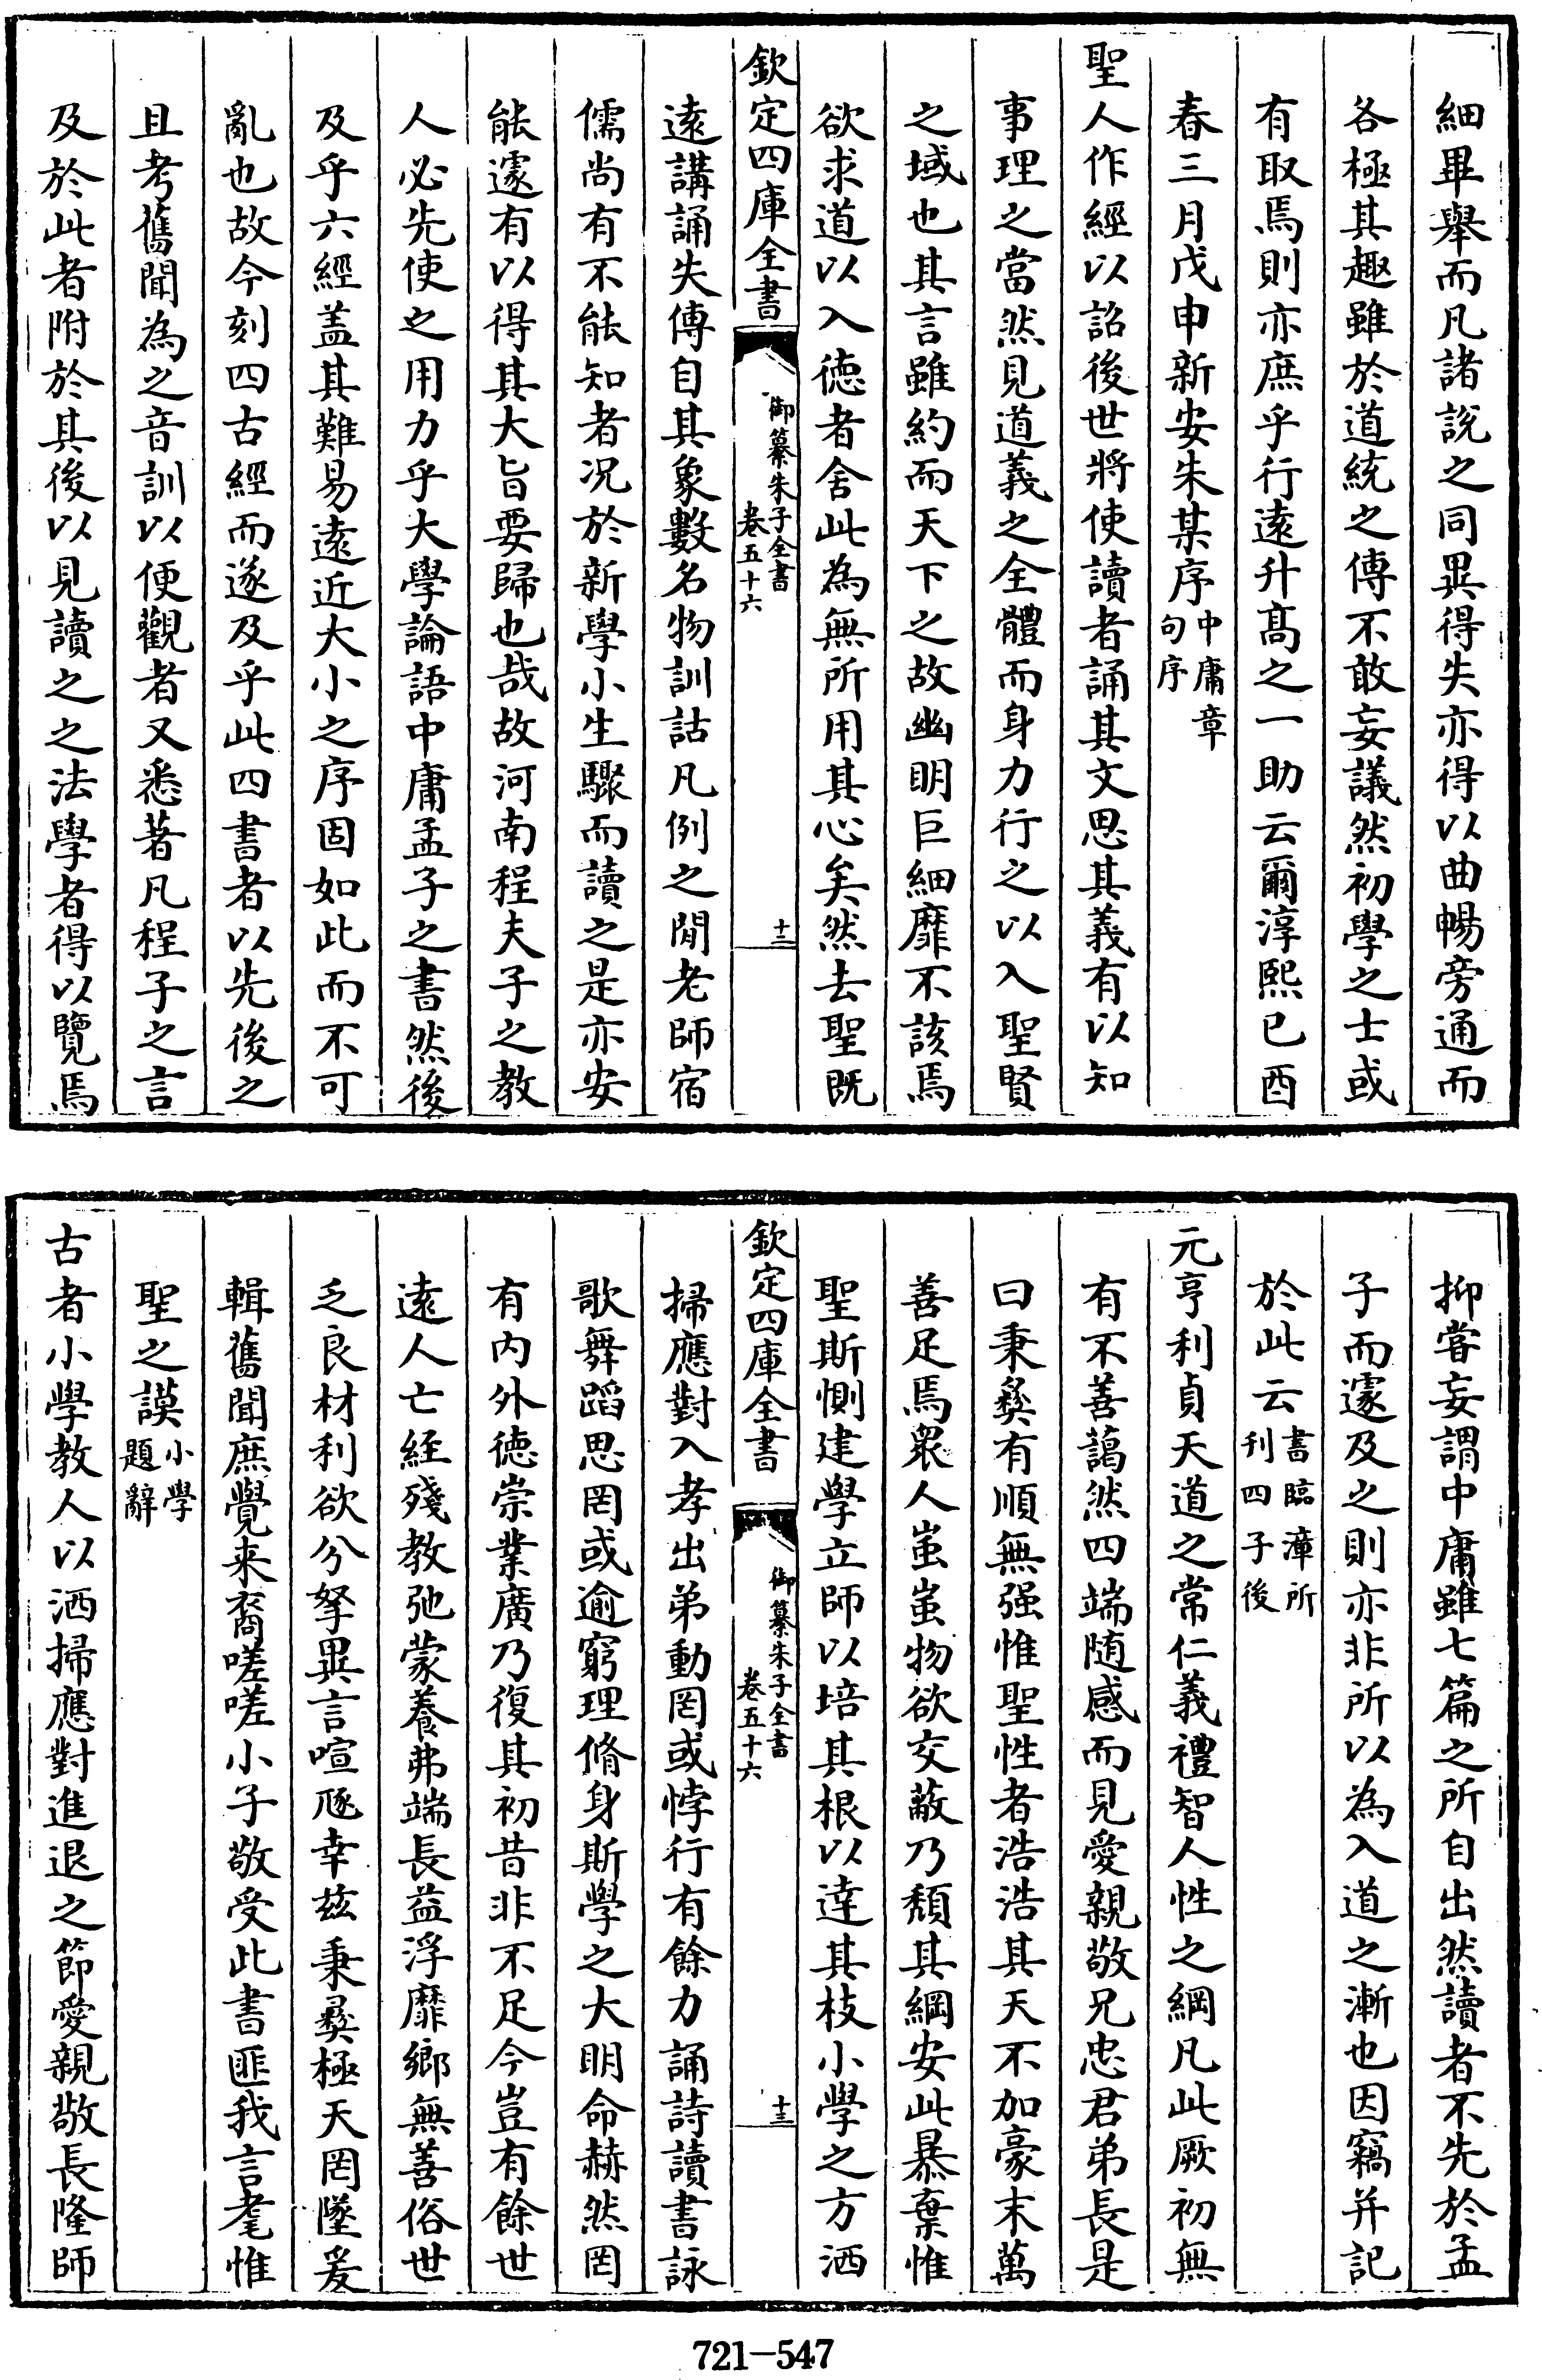 細畢舉而凡諸說之同異得失亦得以曲暢旁通而
各極其趣雖於道統之傳不敢妄議然初學之士或
有取焉則亦庶乎行遠升髙之一助云爾淳熙已酉
春三月戊申新安朱某序中庸章句序
聖人作經以詔後世將使讀者誦其文思其義有以知
事理之當然見道義之全體而身力行之以入聖賢
之域也其言雖約而天下之故幽明巨細靡不該焉
欲求道以入徳者舍此為無所用其心矣然去聖既
欽定四庫全書
御纂朱子全書
卷五十六
十二
遠講誦失傳自其象數名物訓詁凡例之閒老師宿
儒尚有不能知者况於新學小生驟而讀之是亦安
能遽有以得其大旨要歸也哉故河南程夫子之教
人必先使之用力乎大學論語中庸孟子之書然後
及乎六經盖其難易遠近大小之序固如此而不可
亂也故今刻四古經而遂及乎此四書者以先後之
且考舊聞為之音訓以便觀者又悉著凡程子之言
及於此者附於其後以見讀之之法學者得以覽焉
抑嘗妄謂中庸雖七篇之所自出然讀者不先於孟
子而遽及之則亦非所以為入道之漸也因竊并記
於此云書臨漳所刊四子後
元亨利貞天道之常仁義禮智人性之綱凡此厥初無
有不善藹然四端随感而見愛親敬兄忠君弟長是
曰秉彝有順無强惟聖性者浩浩其天不加豪末萬
善足焉衆人蚩蚩物欲交蔽乃頹其綱安此暴棄惟
聖斯惻建學立師以培其根以達其枝小學之方洒
欽定四庫全書
御纂朱子全書
卷五十六
十三
掃應對入孝出弟動罔或悖行有餘力誦詩讀書詠
歌舞蹈思罔或逾窮理脩身斯學之大明命赫然罔
有内外徳崇業廣乃復其初昔非不足今豈有餘世
遠人亡經殘教弛蒙養弗端長益浮靡鄉無善俗世
乏良材利欲分拏異言喧豗幸兹秉彝極天罔墜爰
輯舊聞庶覺来裔嗟嗟小子敬受此書匪我言耄惟
聖之謨小學題辭
古者小學教人以洒掃應對進退之節愛親敬長隆師
721-547